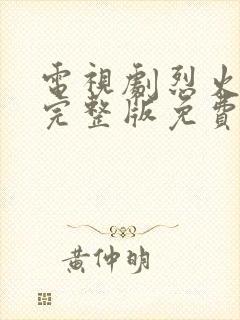 電視劇烈火
完整版免費
黃仲明